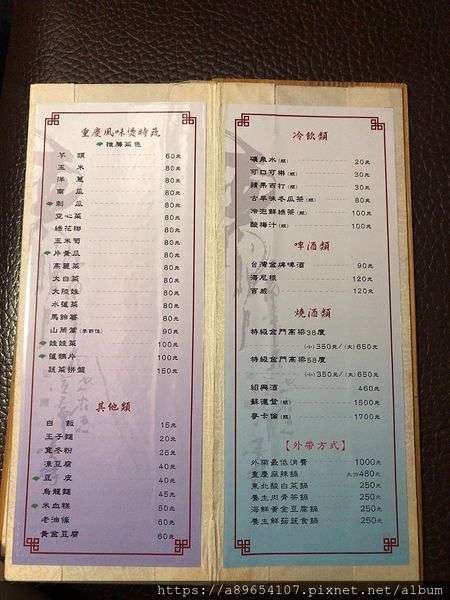 重慶風味燙時蔬
推薦菜色
芋頭 60元
玉米 80元
洋蔥 80元
南瓜 80元
刺瓜 80元
空心菜 80元
綠花椰 80元
玉米筍 80元
片黃瓜 80元
高麗菜 80元
大白菜 80元
大陸妹 80元
水蓮菜 80元
馬鈴薯 80元
山茼蒿(季節性) 90元
娃娃菜 100元
蓮藕片 100元
蔬菜拼盤 150元
其他類
白飯 15元
王子麵 20元
寬冬粉 25元
凍豆腐 40元
豆皮 40元
烏龍麵 45元
米血糕 50元
老油條 60元
黃金豆腐 60元
冷飲類
礦泉水(瓶) 20元
可口可樂(瓶) 30元
蘋果西打(瓶) 30元
古早味冬瓜茶(瓶) 80元
冷泡鮮綠茶(瓶) 100元
酸梅汁(瓶) 100元
啤酒類
台灣金牌啤酒 90元
海尼根 120元
百威 120元
燒酒類
特級金門高粱38度
(小)350元/(大)650元
特級金門高粱58度
(小)350元/(大)650元
紹興酒 460元
蘇運登(瓶) 1500元
麥卡倫(瓶) 1700元
【外帶方式】
外帶最低消費 1000元
重慶麻辣鍋 480元
東北酸白菜鍋 250元
養生肉骨茶鍋 250元
海鮮黃金豆腐鍋 250元
養生鮮菇蔬食鍋 250元
https://a89654107.pixnet.net/album